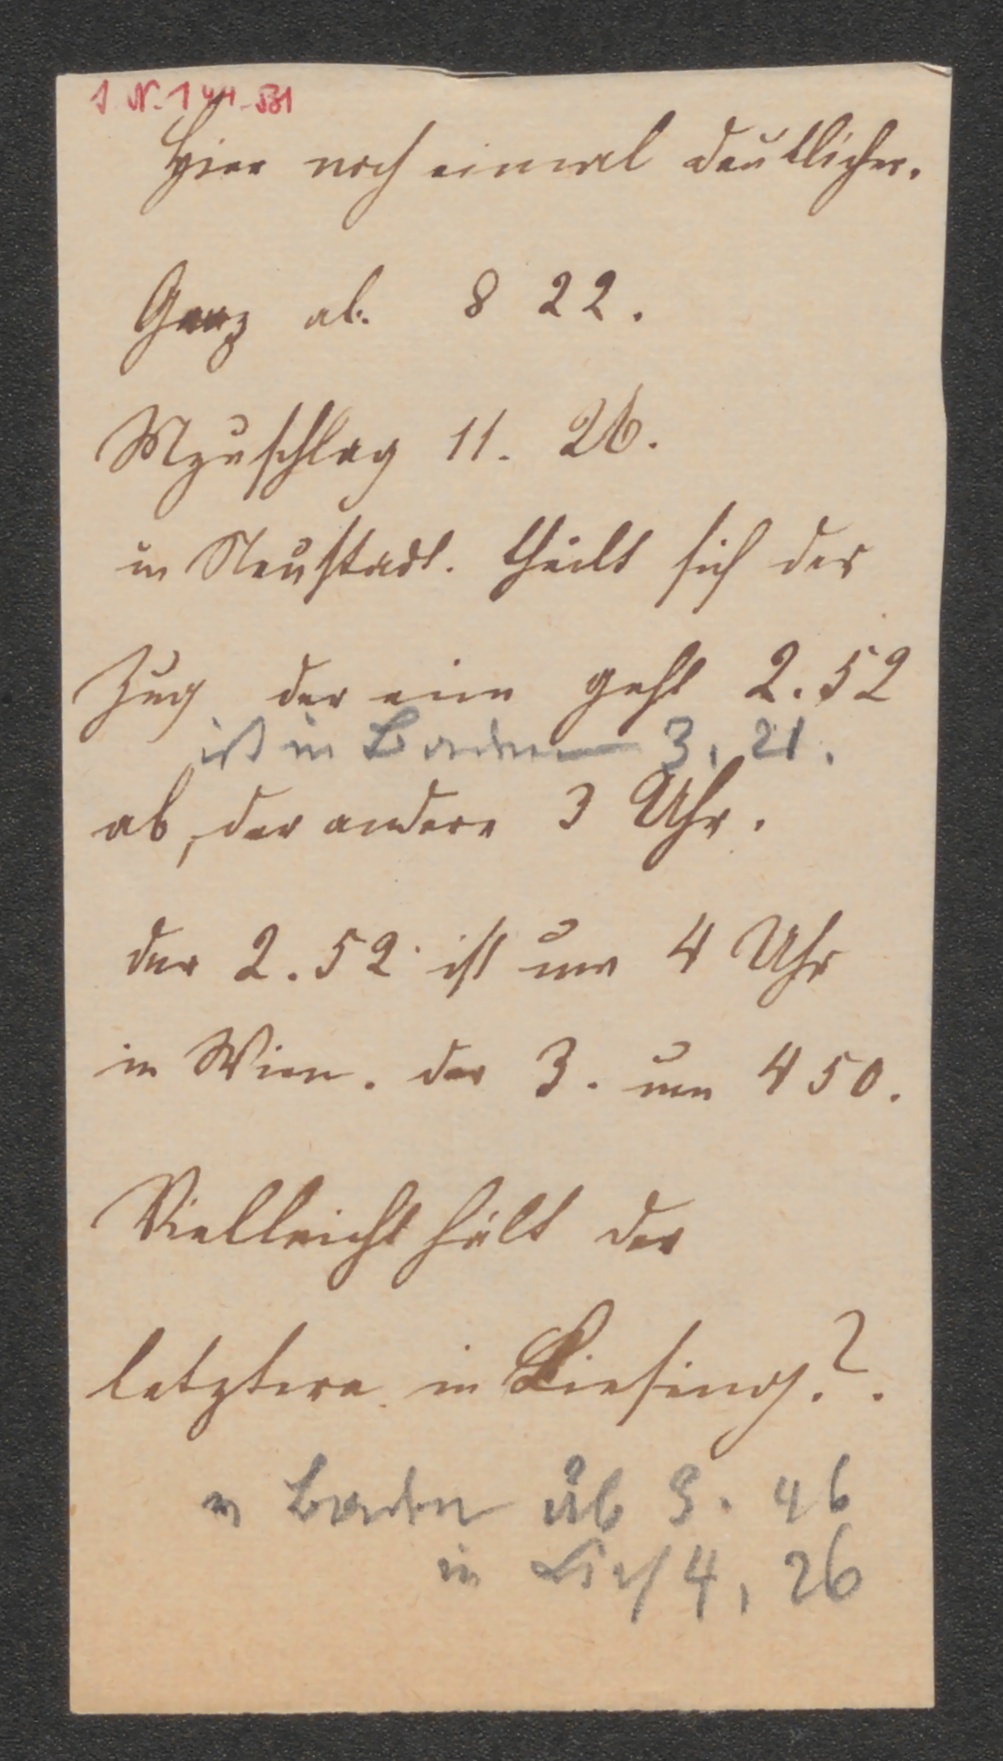 I. N. 144.531
Hier noch einmal deutlicher.
Graz ab. 8 22.
Mzuschlag 11. 26.
in Neustadt. theilt sich der
Zug der eine geht 2.52
ist in Baden 3, 21.
ab, der andere 3 Uhr.
der 2.52 ist um 4 Uhr
in Wien. der 3. um 4 50.
Vielleicht hält der
letztere in Liesing?.
Baden ab 3. 46
in Lies 4, 26